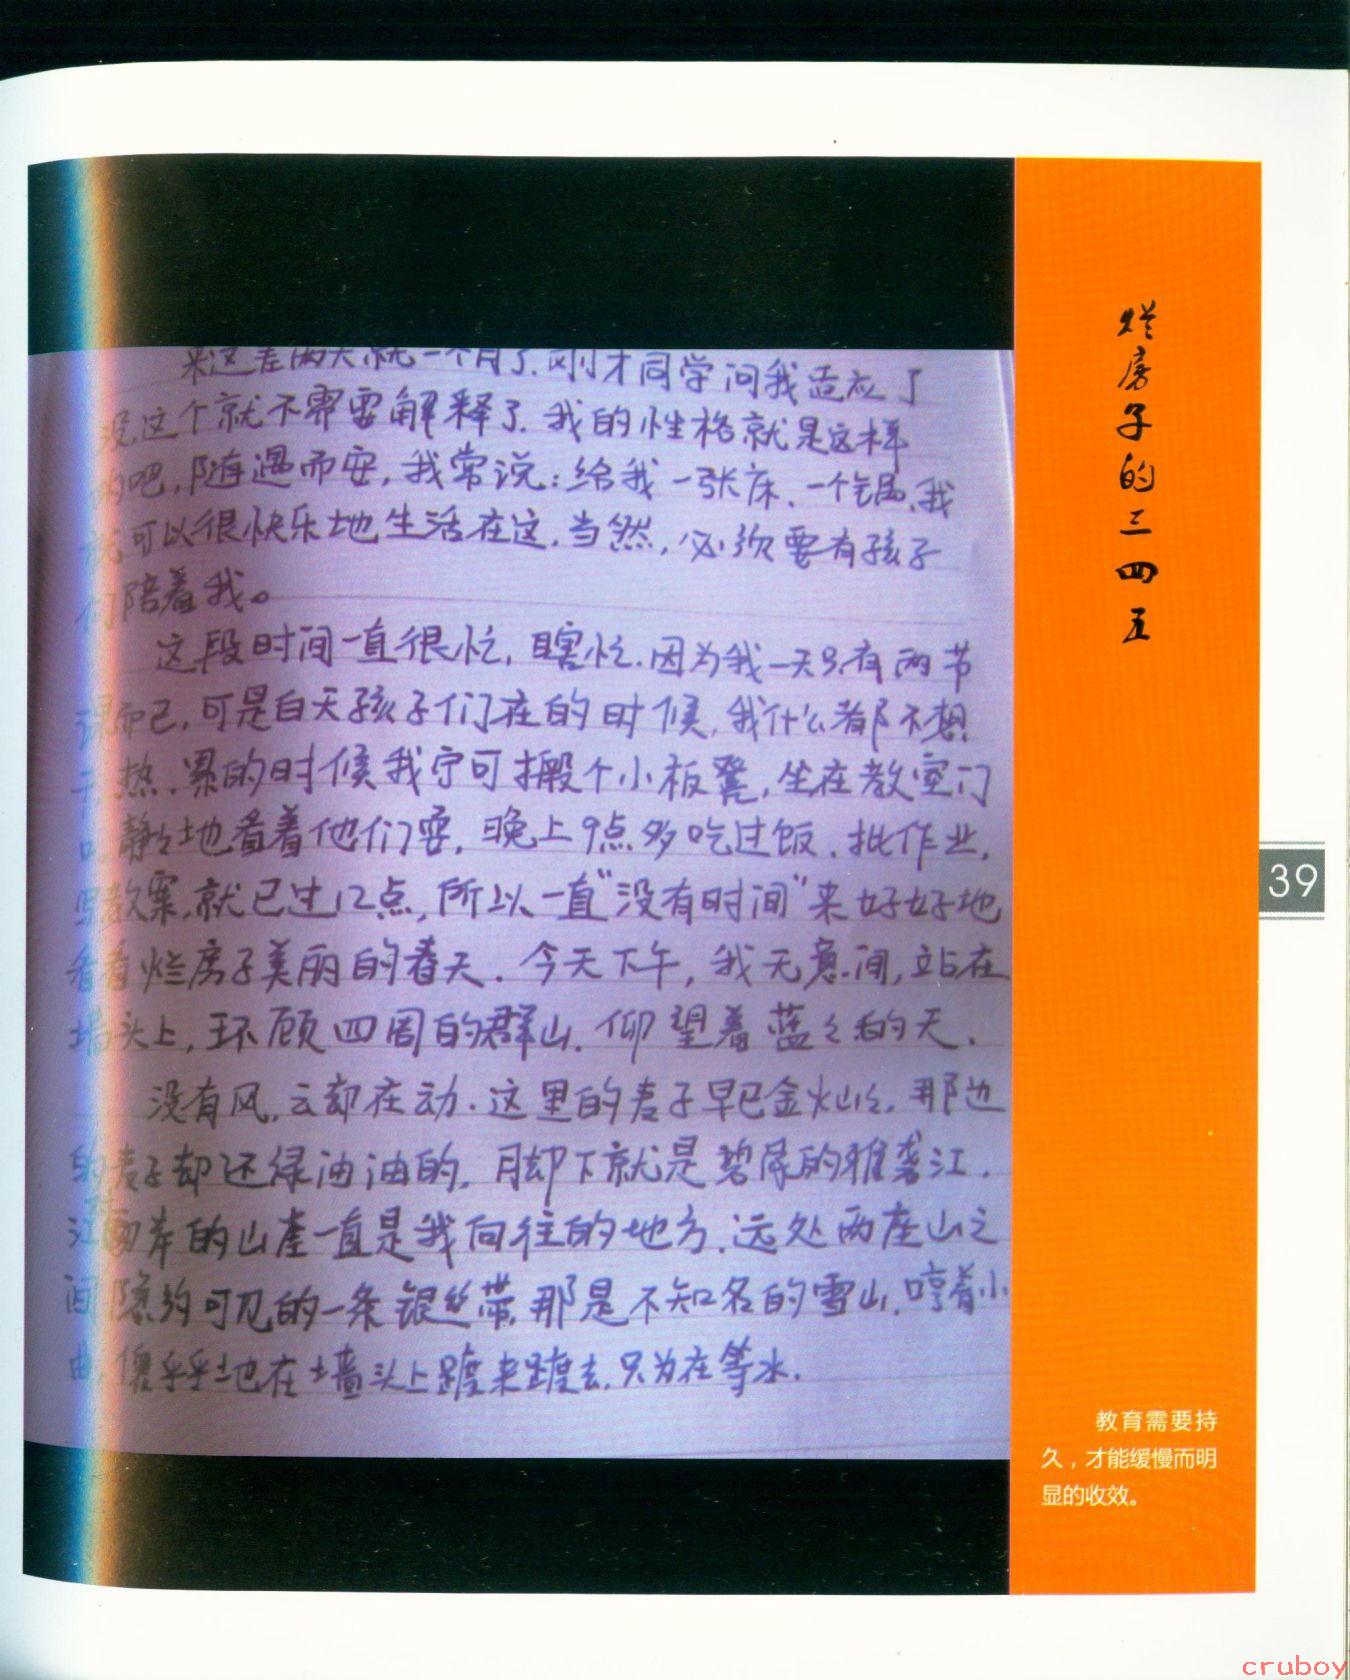 来这差两天就一个月了.刚才同学问我适应了
没,这个就不需要解释了.我的性格就是这样
的吧,随遇而安,我常说:给我一张床、一个锅,我
就可以很快乐地生活在这,当然,必须要有孩子
们陪着我。
这段时间一直很忙,瞎忙.因为我一天只有两节
课而已,可是白天孩子们在的时候,我什么都不想
干,热、累的时候我宁可搬个小板凳,坐在教室门
口静々地看着他们耍,晚上9点多吃过饭、批作业,
写教案,就已过12点,所以一直"没有时间"来好好地
看看烂房子美丽的春天.今天下午,我无意间,站在
墙头上,环顾四周的群山.仰望着蓝々的天.
没有风,云却在动.这里的麦子早已金灿々,那边
的麦子却还绿油油的,脚下就是碧绿的雅砻江.
江对岸的山崖一直是我向往的地方.远处两座山之
间,隐约可见的一条银丝带,那是不知名的雪山.哼着小
曲,傻乎乎地在墙头上踱来踱去,只为在等水.
烂房子的三四五
39
教育需要持
久,才能缓慢而明
显的收效。
cruboy